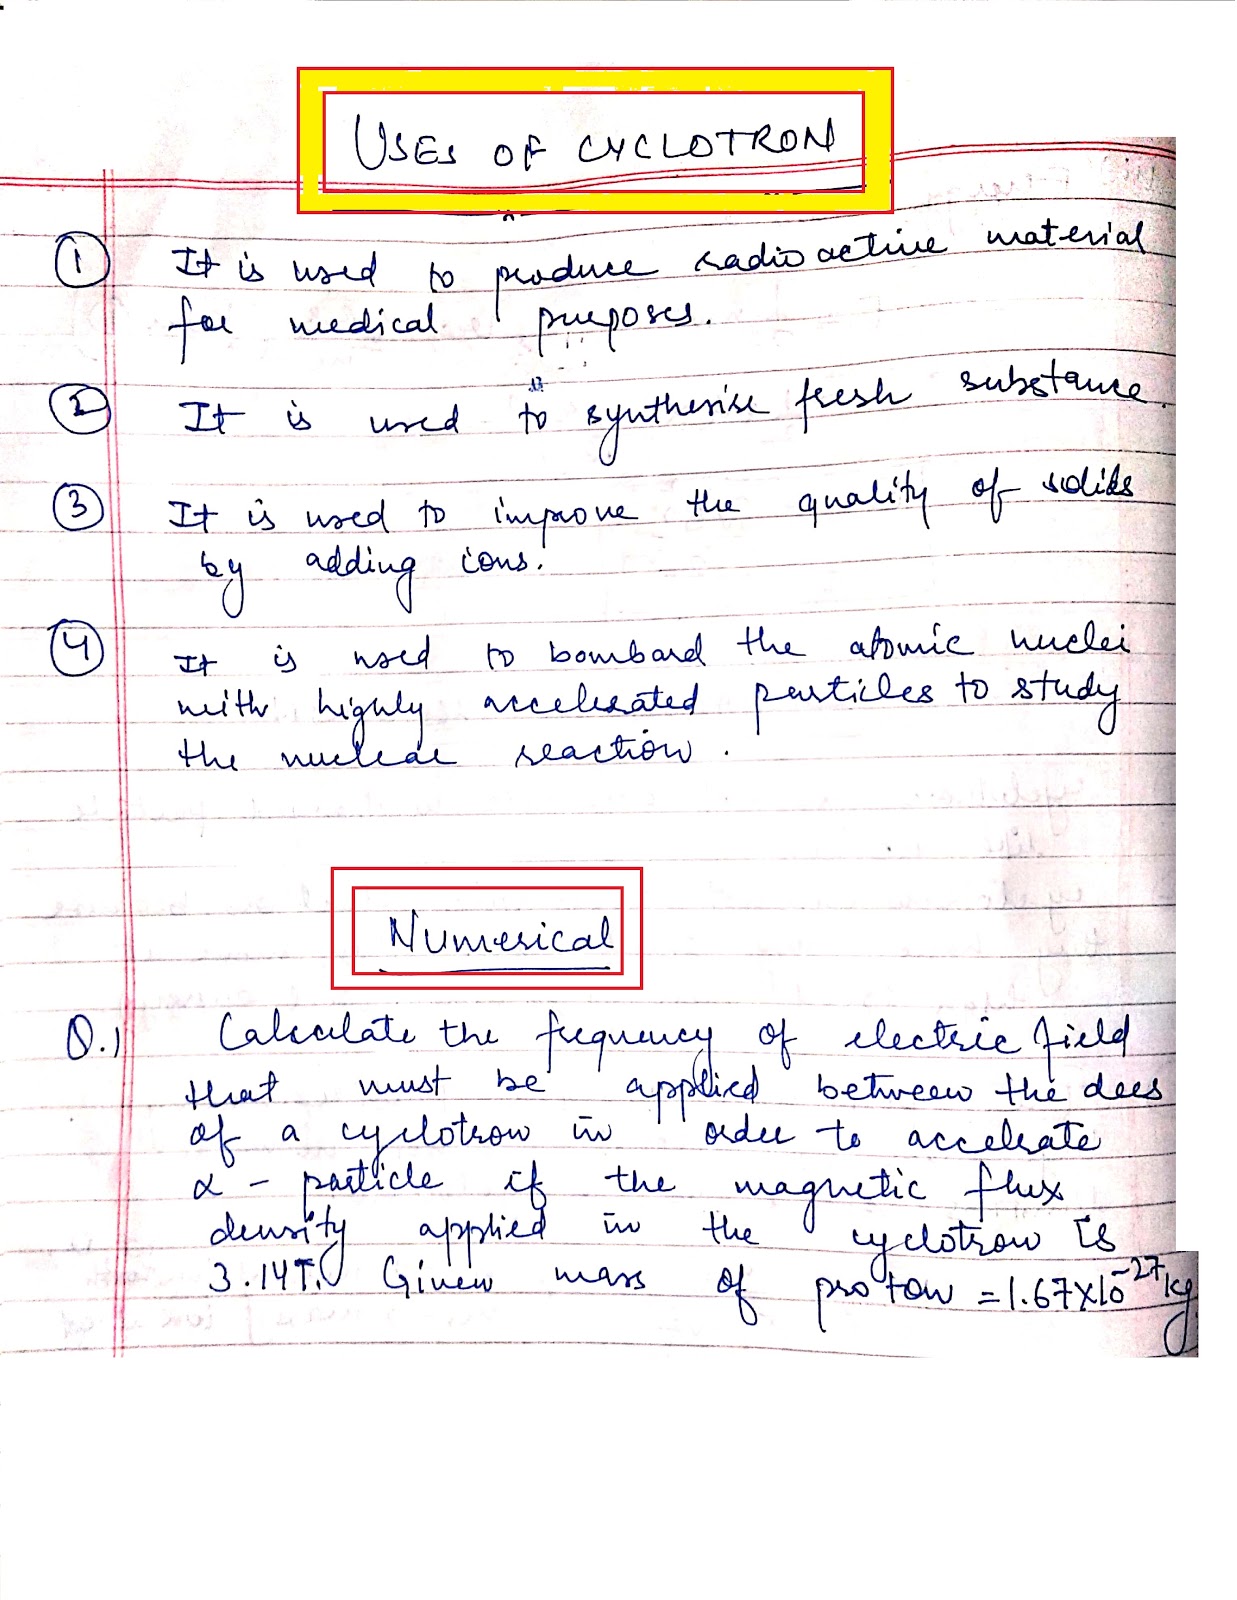 USES OF CYCLOTRON
1 It is used to produce radioactive material
for medical purposes.
2 It is used to synthesise fresh substance.
3 It is used to improve the quality of solids
by adding ions.
4 It is used to bombard the atomic nuclei
with highly accelerated particles to study
the nuclear reaction.
Numerical
Q.1 Calculate the frequency of electric field
that must be applied between the dees
of a cyclotron in order to accelerate
α - particle if the magnetic flux
density applied in the cyclotron is
3.14T. Given mass of proton = 1.67x10⁻²⁷kg.